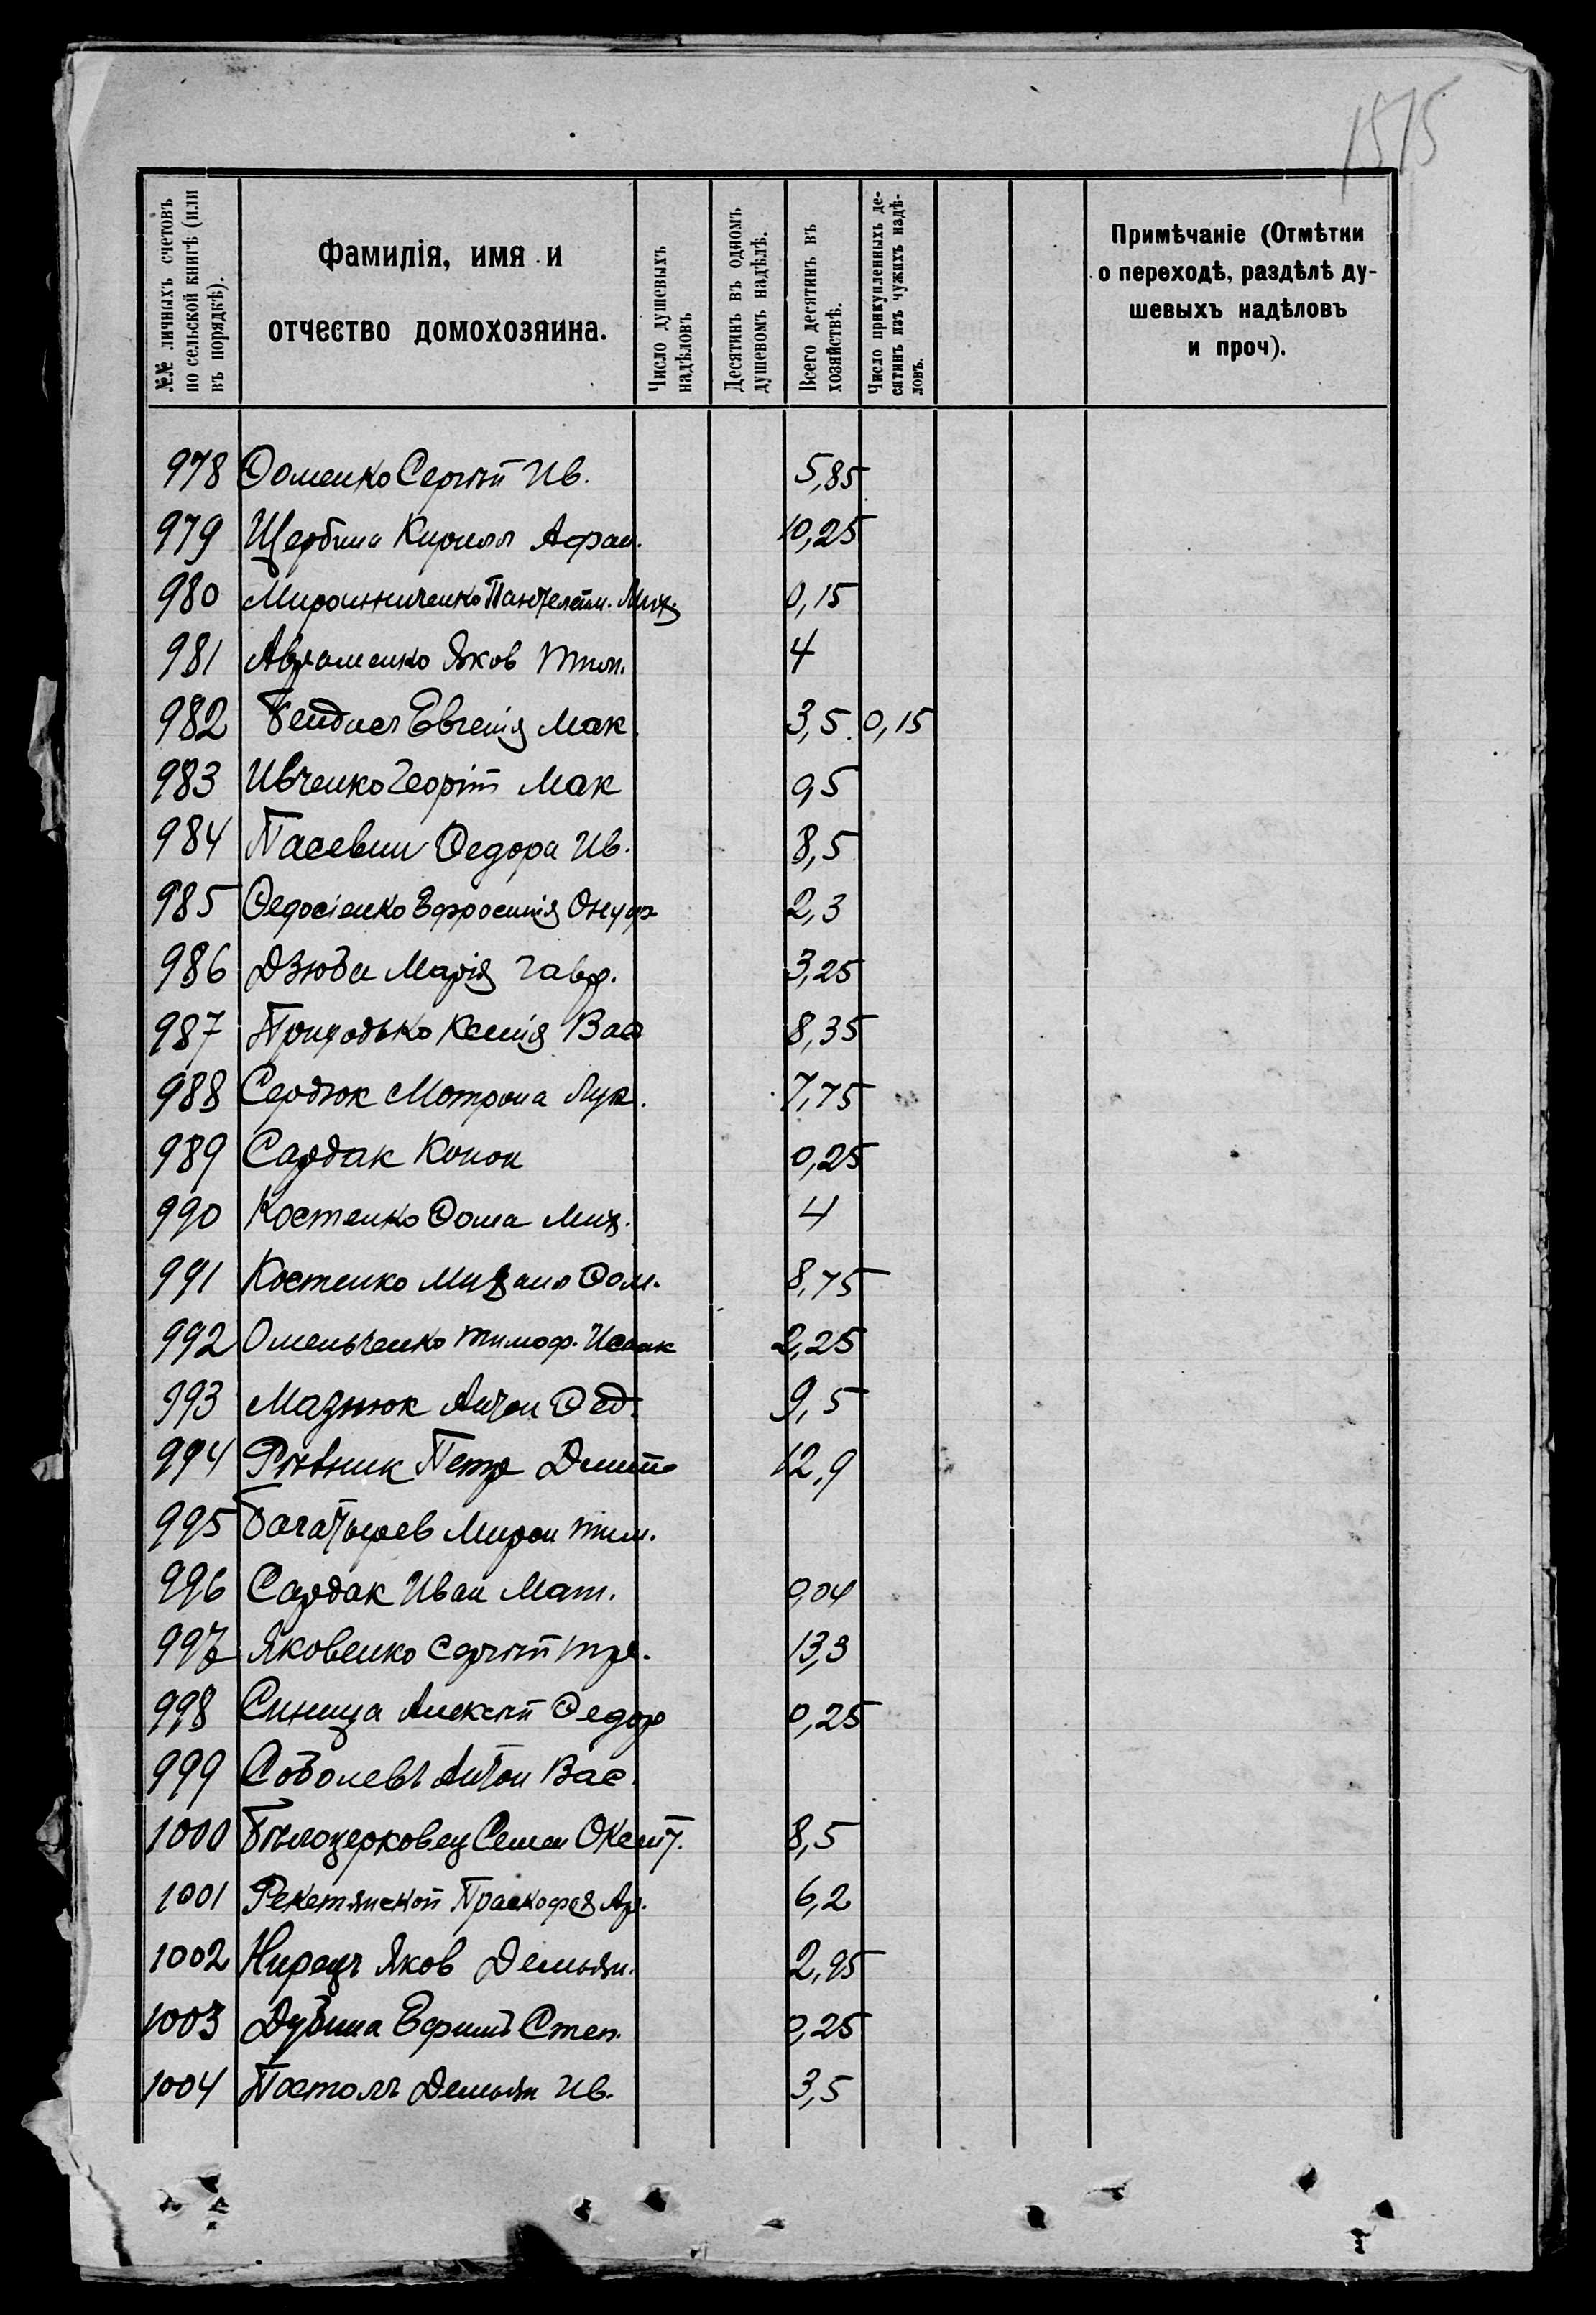 1515
№№ личныхъ счетовъ
по сельской книгѣ (или
въ порядкѣ).
Фамилія, имя и
отчество домохозяина.
Число душевыхъ
надѣловъ
Десятинъ въ одномъ
душевомъ надѣлѣ.
Всего десятинъ въ
хозяйствѣ.
Число прикупленныхъ де-
сятинъ изъ чужихъ надѣ-
ловъ.
Примѣчаніе (Отмѣтки
о переходѣ, раздѣлѣ ду-
шевыхъ надѣловъ
и проч).
978 Ѳоменко Сергѣй Ив. 5,85
979 Щербина Кирилл Афан. 10,25
980 Мирошниченко Пантелейм. Мих. 0,15
981 Авраменко Яков Тим. 4
982 Евгенія Мак. 3,5 0,15
983 Ивченко Георгій Мак 9,5
984 Ѳедора Ив. 8,5
985 Ѳедосіенко Ефросинія Онуфр 2,3
986 Дзюба Марія Гавр. 3,25
987 Приходько Ксенія Вас 8,35
988 Сердюк Мотрона Лук. 7,75
989 Сардак Конон 0,25
990 Костенко Ѳома Мих. 4
991 Костенко Михаил Ѳом. 8,75
992 Омельченко Тимоф. Исаак 2,25
993 Мазнюк Антон Ѳед. 9,5
994 Рѣвник Петр Дмит 12,9
995 Багатырев Мирон Тим.
996 Сардак Иван Мат. 0,04
997 Яковенко Сергѣй Тр. 13,3
998 Синица Алексѣй Ѳедор 0,25
999 Соболевъ Антон Вас.
1000 Бѣлоцерковец Семен 8,5
1001 Ар. 6,2
1002 Яков Демьян. 2,95
1003 Дубина Ефимъ Степ. 0,25
1004 Постолъ Демьян Ив. 3,5